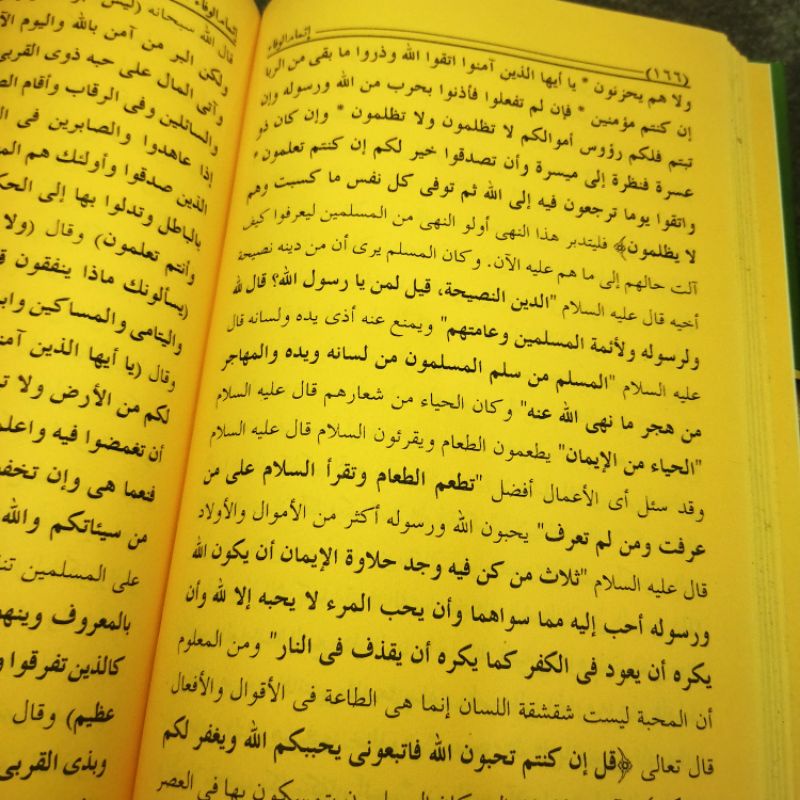 إتمام الوفاء
(١٦٦)
ولا هم يحزنون * يا أيها الذين آمنوا اتقوا الله وذروا ما بقى من الربا
إن كنتم مؤمنين * فإن لم تفعلوا فأذنوا بحرب من الله ورسوله وإن
تبتم فلكم رؤوس أموالكم لا تظلمون ولا تظلمون * وإن كان ذو
عسرة فنظرة إلى ميسرة وأن تصدقوا خير لكم إن كنتم تعلمون *
واتقوا يوما ترجعون فيه إلى الله ثم توفى كل نفس ما كسبت وهم
لا يظلمون﴾ فليتدبر هذا النهى أولو النهى من المسلمين ليعرفوا كيف
آلت حالهم إلى ما هم عليه الآن. وكان المسلم يرى أن من دينه نصيحة
أخيه قال عليه السلام "الدين النصيحة، قيل لمن يا رسول الله؟ قال لله
ولرسوله ولأئمة المسلمين وعامتهم" ويمنع عنه أذى يده ولسانه قال
عليه السلام "المسلم من سلم المسلمون من لسانه ويده والمهاجر
من هجر ما نهى الله عنه" وكان الحياء من شعارهم قال عليه السلام
"الحياء من الإيمان" يطعمون الطعام ويقرئون السلام قال عليه السلام
وقد سئل أى الأعمال أفضل "تطعم الطعام وتقرأ السلام على من
عرفت ومن لم تعرف" يحبون الله ورسوله أكثر من الأموال والأولاد
قال عليه السلام "ثلاث من كن فيه وجد حلاوة الإيمان أن يكون الله
ورسوله أحب إليه مما سواهما وأن يحب المرء لا يحبه إلا لله وأن
يكره أن يعود فى الكفر كما يكره أن يقذف فى النار" ومن المعلوم
أن المحبة ليست شقشقة اللسان إنما هى الطاعة فى الأقوال والأفعال
قال تعالى ﴿قل إن كنتم تحبون الله فاتبعونى يحببكم الله ويغفر لكم
المسلمون يتمسكون بها فى العصر
إتمام الوفاء
قال الله سبحانه (ليس
ولكن البر من آمن بالله واليوم
وآتى المال على حبه ذوى القربى
والسائلين وفى الرقاب وأقام
إذا عاهدوا والصابرين فى
الذين صدقوا وأولئك هم
بالباطل وتدلوا بها إلى
وأنتم تعلمون) وقال (ولا
(يسألونك ماذا ينفقون
واليتامى والمساكين
وقال (يا أيها الذين
لكم من الأرض ولا
أن تغمضوا فيه
فنعما هى وإن
من سيئاتكم والله
على المسلمين
بالمعروف
كالذين تفرقوا
عظيم) وقال
وبذى القربى